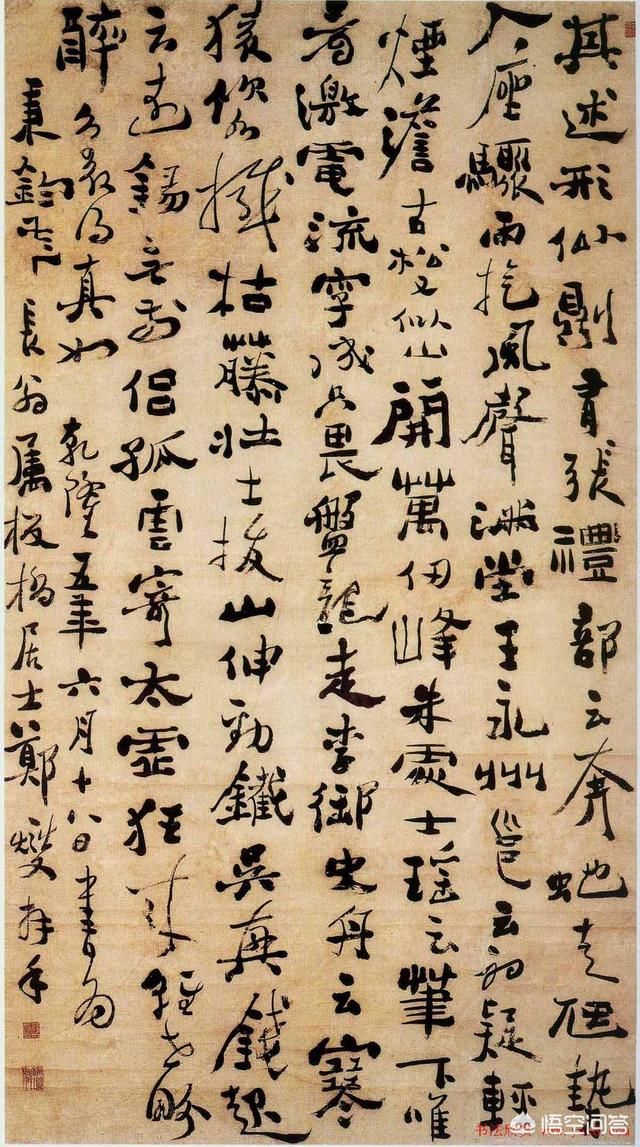 其述形似則有張禮部云奔蛇走虺執
入座驟雨旋風聲滿堂王永州邕云初疑輕
煙澹古松又似山開萬仞峰朱處士瑤云筆下唯
看激電流字成只畏盤龍走李御史舟云寒
猿飲水撼枯藤壯士拔山伸勁鐵吳興錢起
云遠錫無前侶孤雲寄太虛狂來輕世界
醉得真如乾隆五年六月十八日書為
秉鈞長翁屬板橋居士鄭燮拜手
书法欣赏
悟空问答